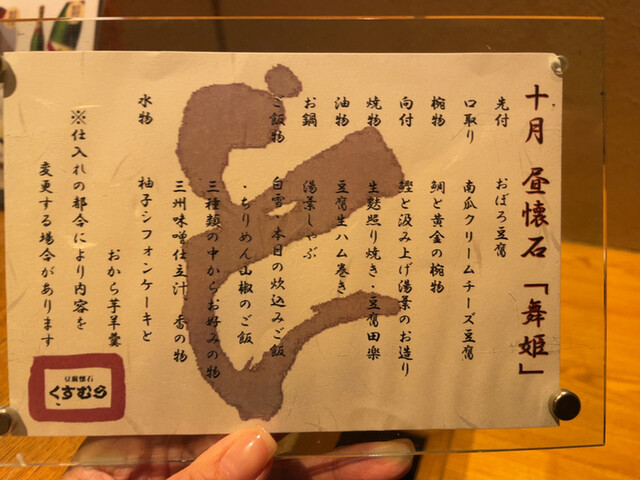 十月 昼懐石「舞姫」
先付 おぼろ豆腐
口取り 南瓜クリームチーズ豆腐
椀物 鯛と黄金の椀物
向付 鰹と汲み上げ湯葉のお造り
焼物 生麩照り焼き・豆腐田楽
油物 豆腐生ハム巻き
お鍋 湯葉しゃぶ
ご飯物 白雪・本日の炊込みご飯
・ちりめん山椒のご飯
三種類の中からお好みの物
三州味噌仕立汁、香の物
水物 柚子シフォンケーキと
おから芋羊羹
※仕入れの都合により内容を
変更する場合があります
豆腐懐石
くすむら